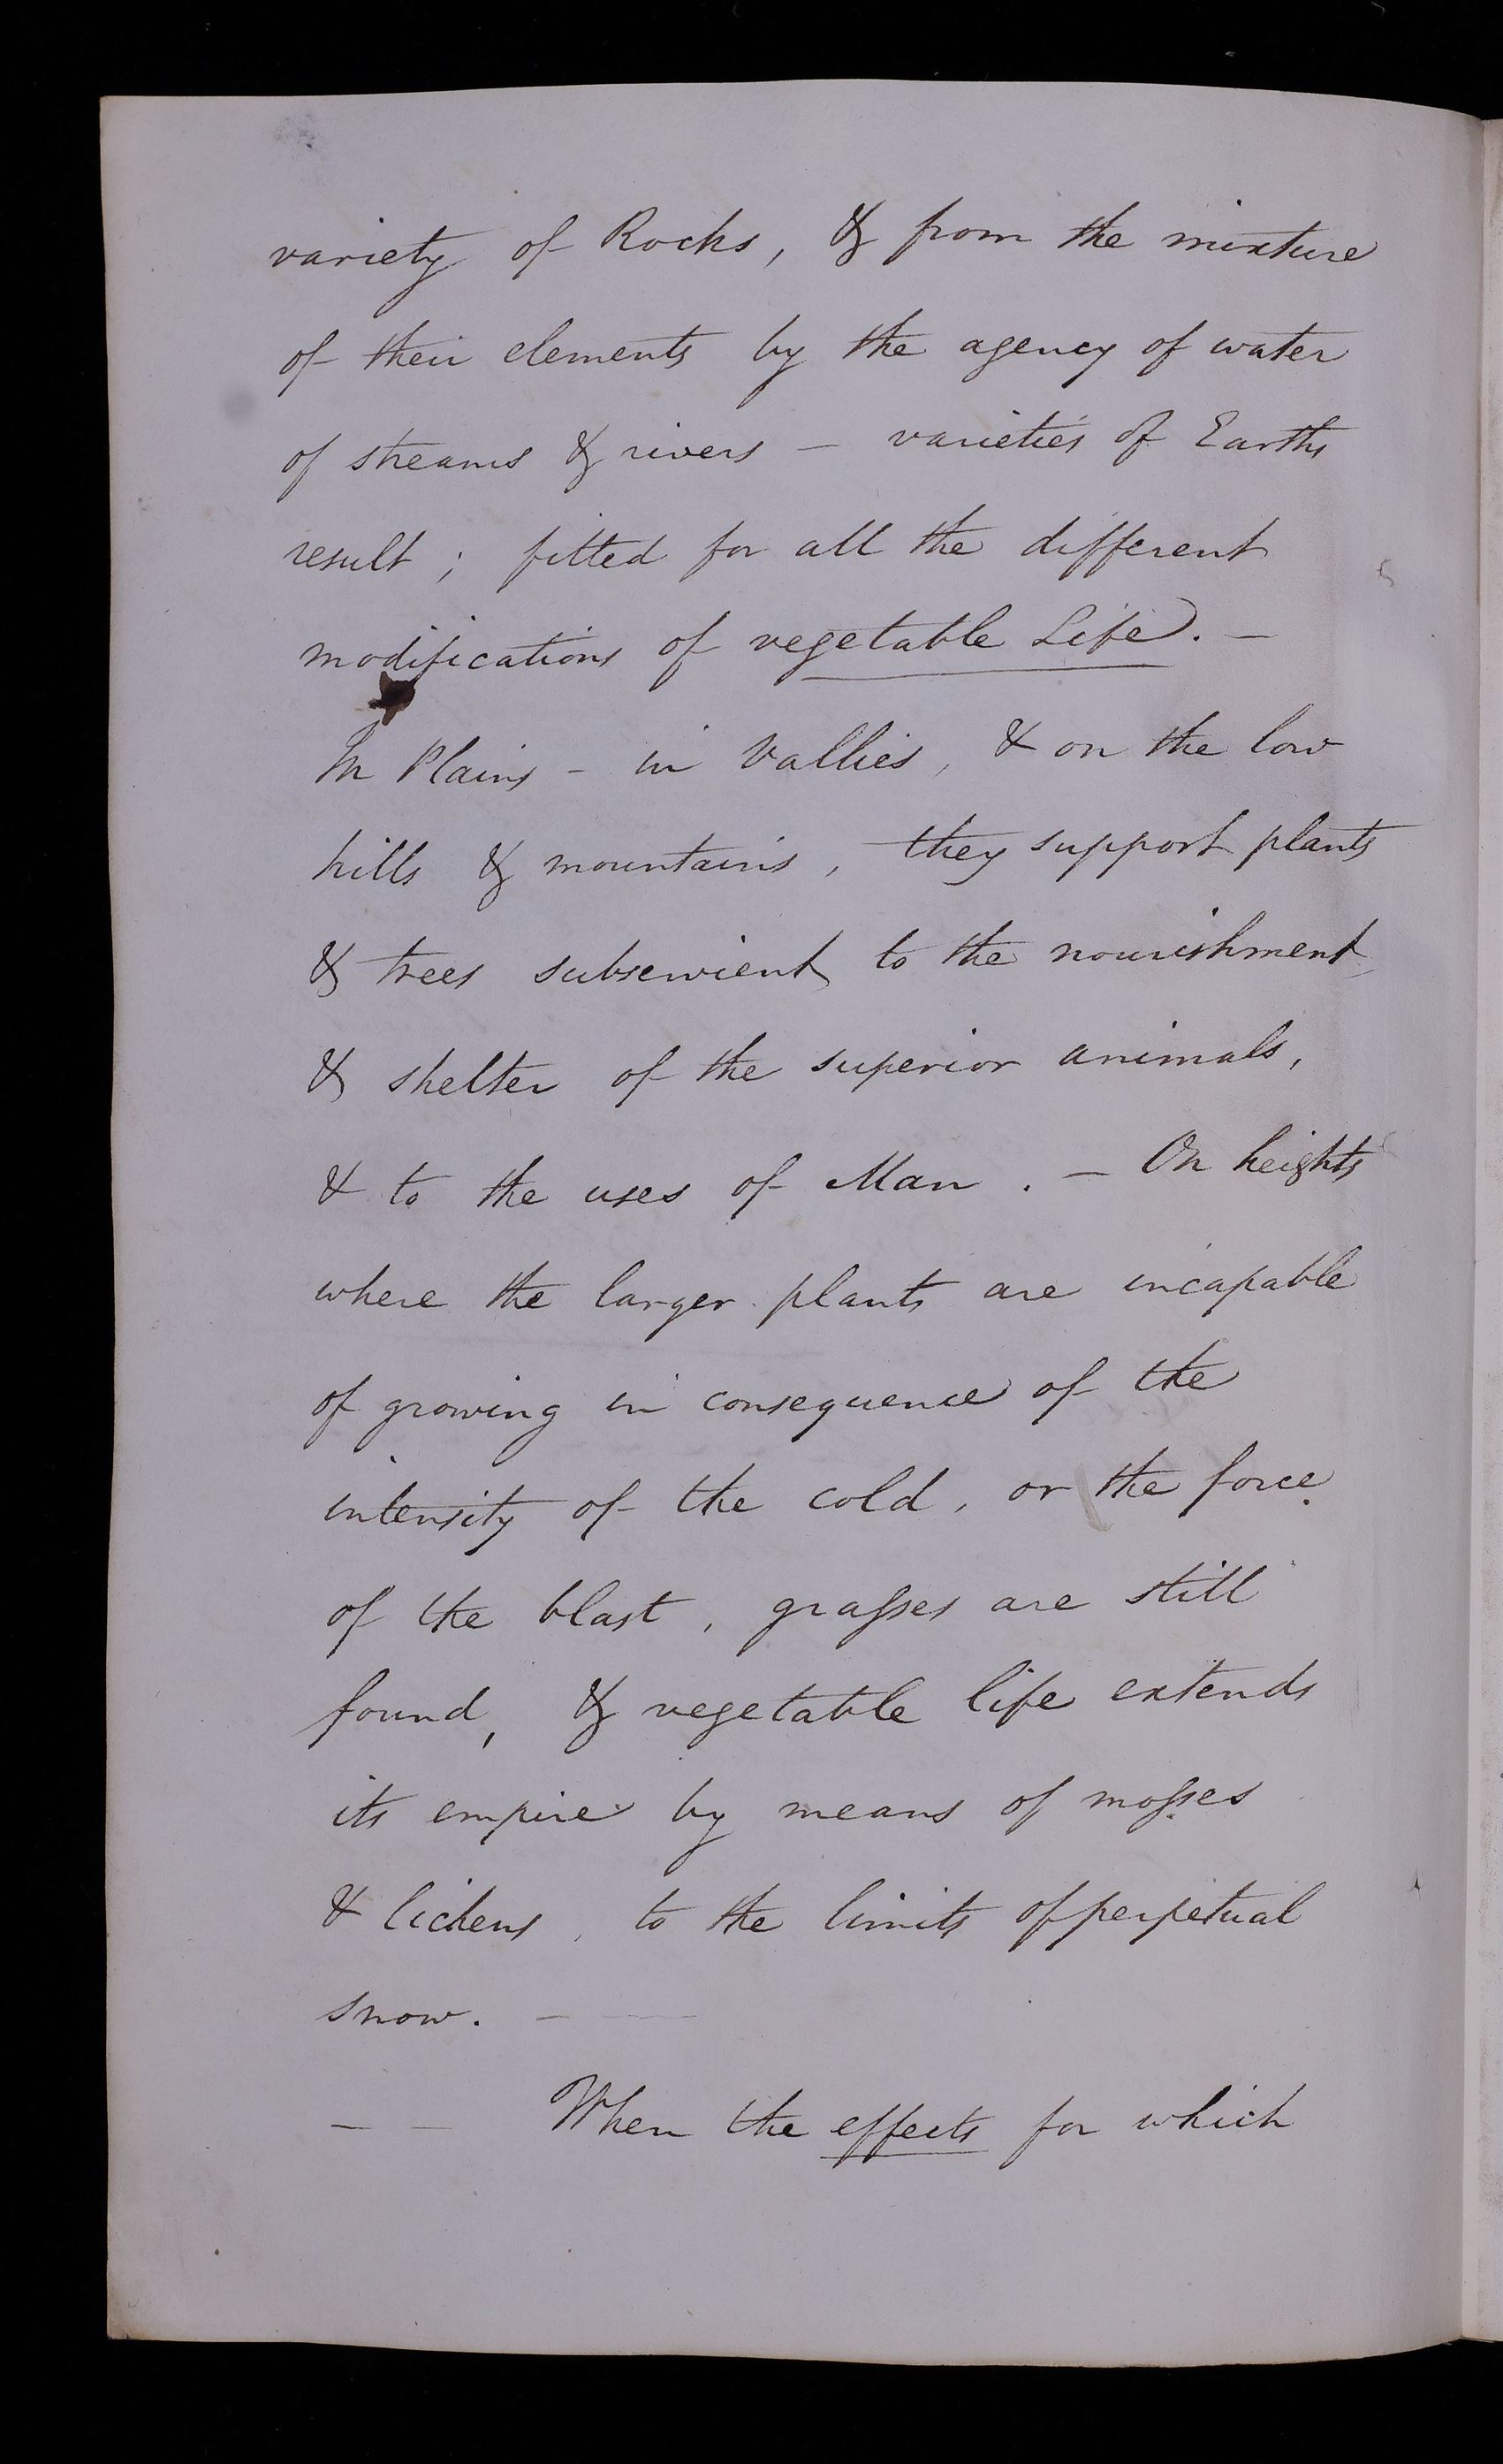 variety of Rocks, & from the mixture
of their elements by the agency of water
of streams & rivers - varieties of Earths
result; fitted for all the different
modifications of vegetable Life. -
In Plains - in Vallies, & on the low
hills & mountains, they support plants
& trees subservient to the nourishment
& shelter of the superior animals,
& to the uses of Man. - On heights
where the larger plants are incapable
of growing in consequence of the
intensity of the cold, or the force
of the blast, grasses are still
found, & vegetable life extends
its empire by means of mosses
& lichens, to the limits of perpetual
snow. - -
- - When the effects for which